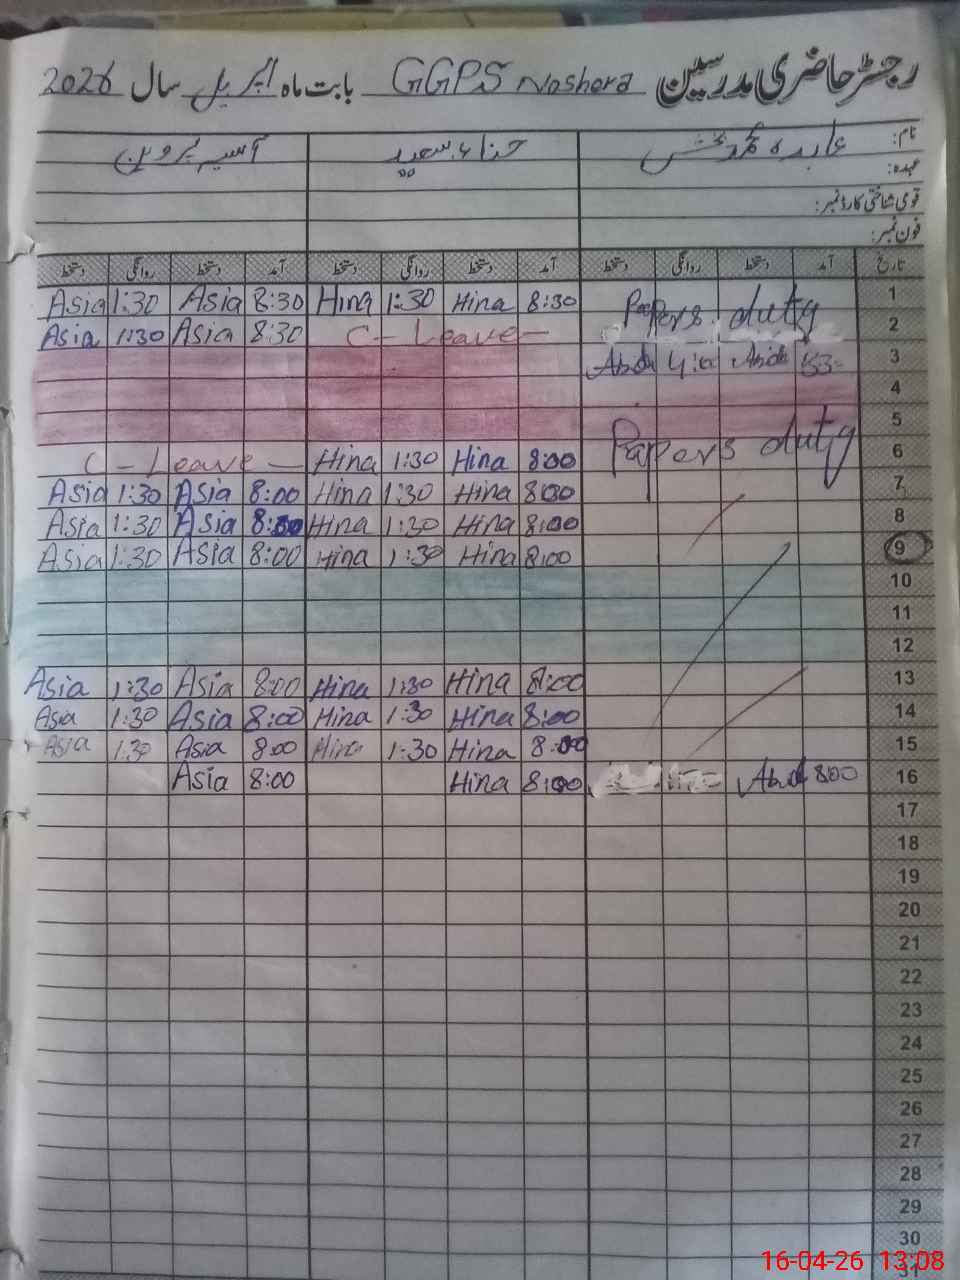 رجسٹر حاضری مدرسین GGPS Noshera بابت ماہ اپریل سال 2026
نام: عابدہ محمد بخش حناء سعید آسیہ پروین
عہدہ:
قومی شناختی کارڈ نمبر:
فون نمبر:
تاریخ آمد دستخط روانگی دستخط آمد دستخط روانگی دستخط آمد دستخط روانگی دستخط
Asia 1:30 Asia 8:30 Hina 1:30 Hina 8:30 Papers duty 1
Asia 1:30 Asia 8:30 C - Leave - 2
3
4
5
C - Leave - Hina 1:30 Hina 8:00 Papers duty 6
Asia 1:30 Asia 8:00 Hina 1:30 Hina 8:00 7
Asia 1:30 Asia 8:00 Hina 1:30 Hina 8:00 8
Asia 1:30 Asia 8:00 Hina 1:30 Hina 8:00 9
10
11
12
Asia 1:30 Asia 8:00 Hina 1:30 Hina 8:00 13
Asia 1:30 Asia 8:00 Hina 1:30 Hina 8:00 14
Asia 1:30 Asia 8:00 Hina 1:30 Hina 8:00 15
Asia 8:00 Hina 8:00 Abid 800 16
17
18
19
20
21
22
23
24
25
26
27
28
29
30
31
16-04-26 13:08